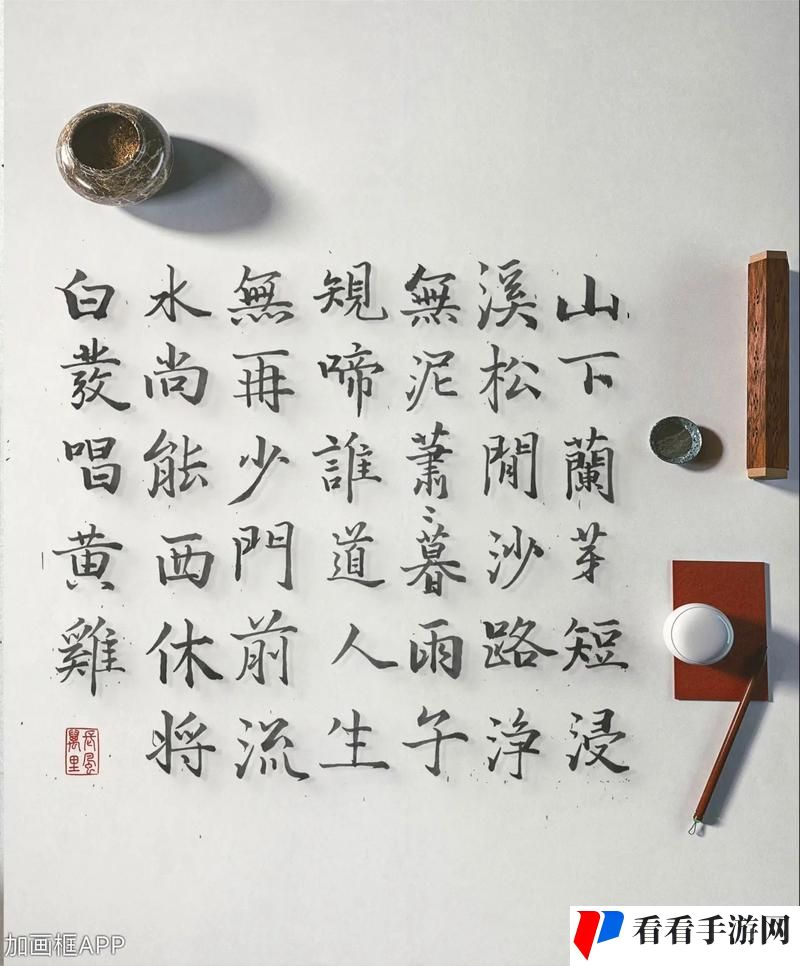 山下蘭芽短浸
溪松閒沙路淨
無泥蕭〻暮雨子
䂓啼誰道人生
無再少門前流
水尚能西休將
白發唱黄雞
長風萬里
加画框APP
看看手游网